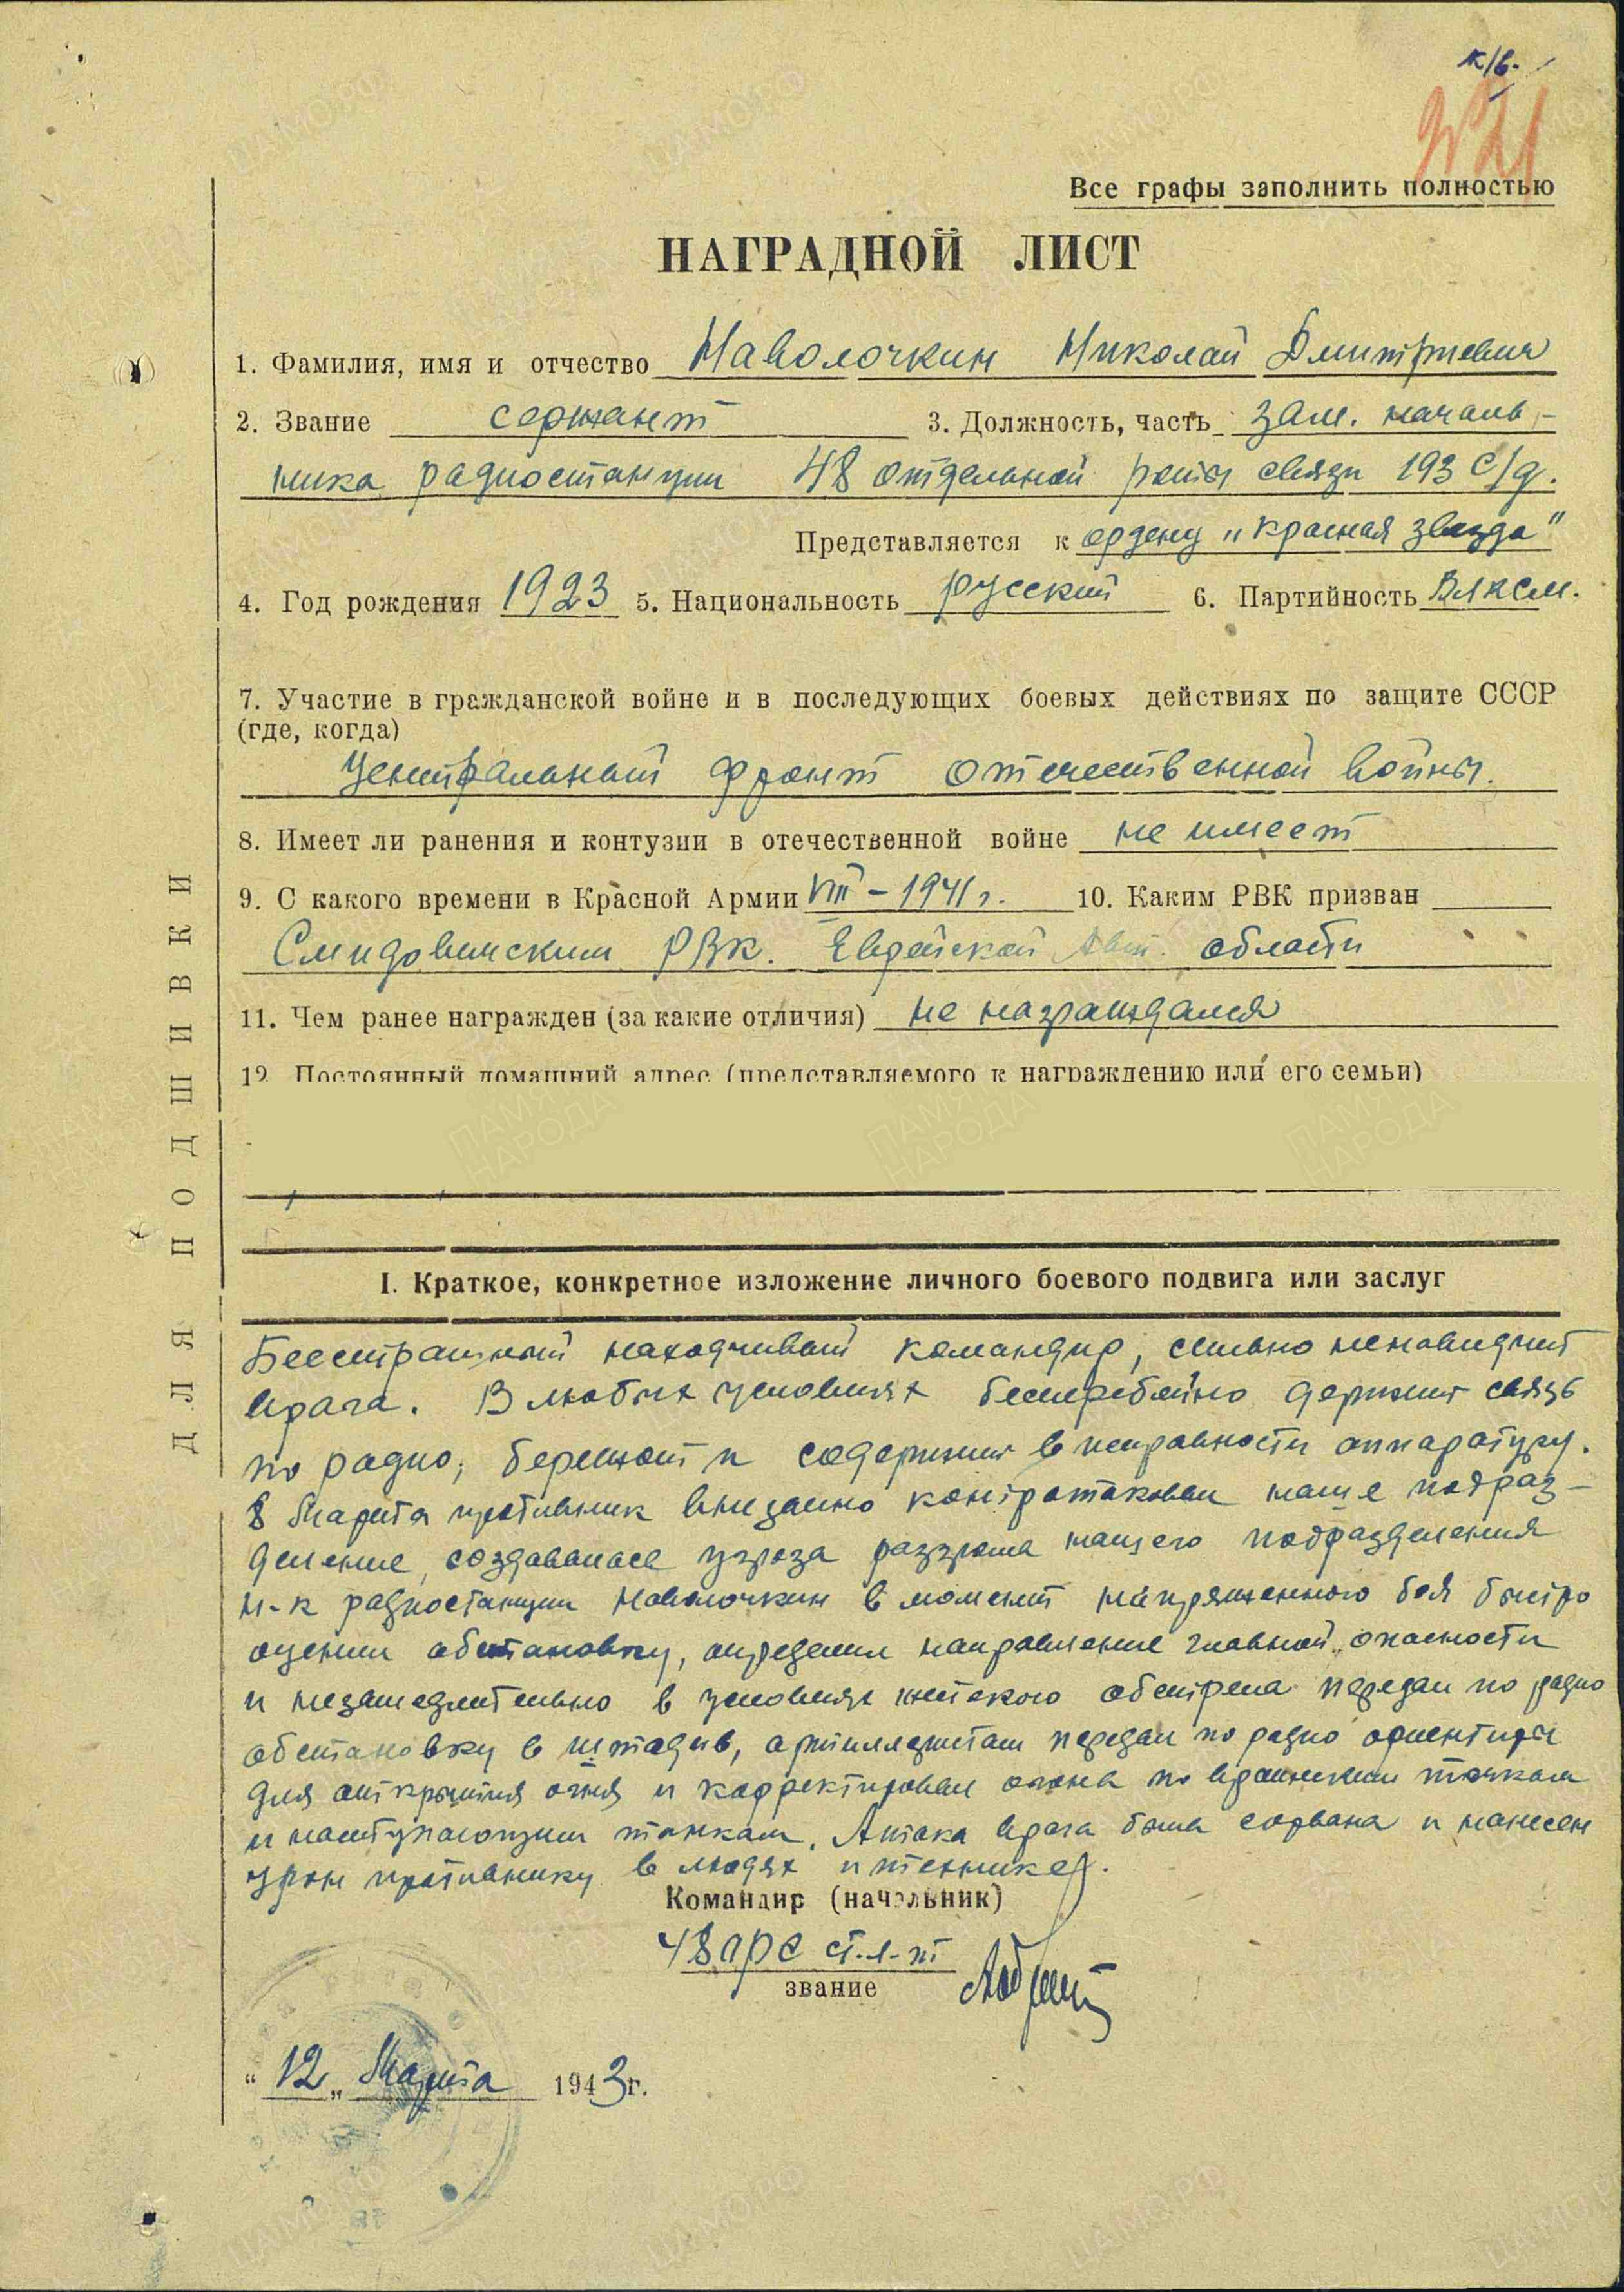 к/в.
Все графы заполнить полностью
НАГРАДНОЙ ЛИСТ
1. Фамилия, имя и отчество Наволочкин Николай Дмитриевич
2. Звание сержант 3. Должность, часть зам. началь-
ника радиостанции 48 отдельной роты связи 193 с/д.
Представляется к ордену „Красная звезда"
4. Год рождения 1923 5. Национальность русский 6. Партийность ВЛКСМ.
7. Участие в гражданской войне и в последующих боевых действиях по защите СССР
(где, когда)
Центральный фронт отечественной войны.
8. Имеет ли ранения и контузии в отечественной войне не имеет
9. С какого времени в Красной Армии VIII – 1941 г. 10. Каким РВК призван
Смидовичским РВК. Еврейской Авт. области
11. Чем ранее награжден (за какие отличия) не награждался
12. Постоянный домашний адрес (представляемого к награждению или его семьи)
ДЛЯ ПОДШИВКИ
I. Краткое, конкретное изложение личного боевого подвига или заслуг
Бесстрашный находчивый командир, сильно ненавидит
врага. В любых условиях бесперебойно держит связь
по радио, бережот и содержит в исправности аппаратуру.
8 Марта противник внезапно контратаковал наше подраз-
деление, создавалась угроза разгрома нашего подразделения
н-к радиостанции Наволочкин в момент напряженного боя быстро
оценил обстановку, определил направление главной опасности
и незамедлительно в условиях жестокого обстрела передал по радио
обстановку в штадив, артиллеристам передал по радио ориентиры
для открытия огня и корректировал огонь по вражеским точкам
и наступающим танкам. Атака врага была сорвана и нанесен
урон противнику в людях и технике.
Командир (начальник)
48 орс ст. л-т
звание
„12" Марта 1943 г.
ПАМЯТЬ НАРОДА
ЦАМО.РФ